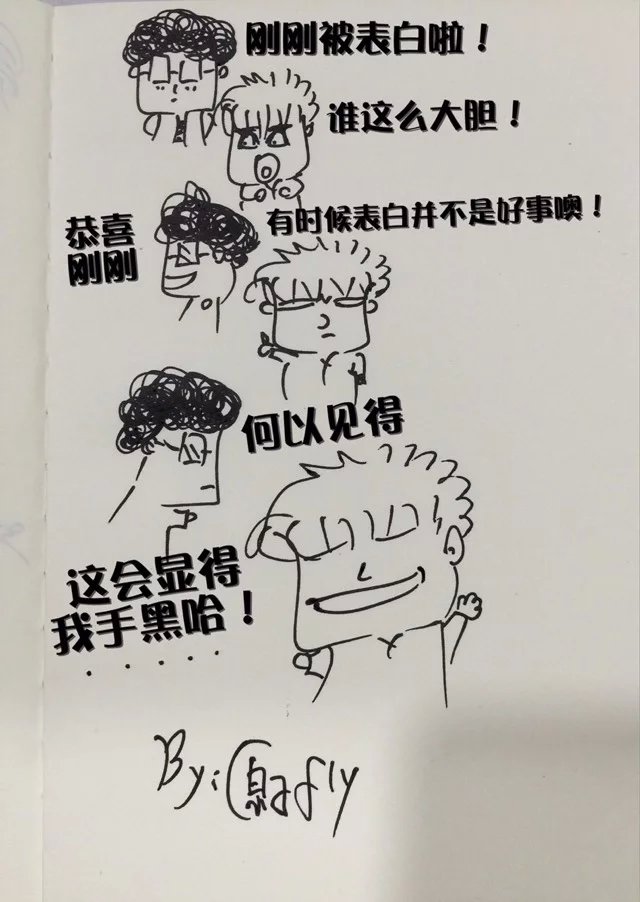 刚刚被表白啦！
谁这么大胆！
恭喜
刚刚
有时候表白并不是好事噢！
何以见得
这会显得
我手黑哈！
......
By:
fly